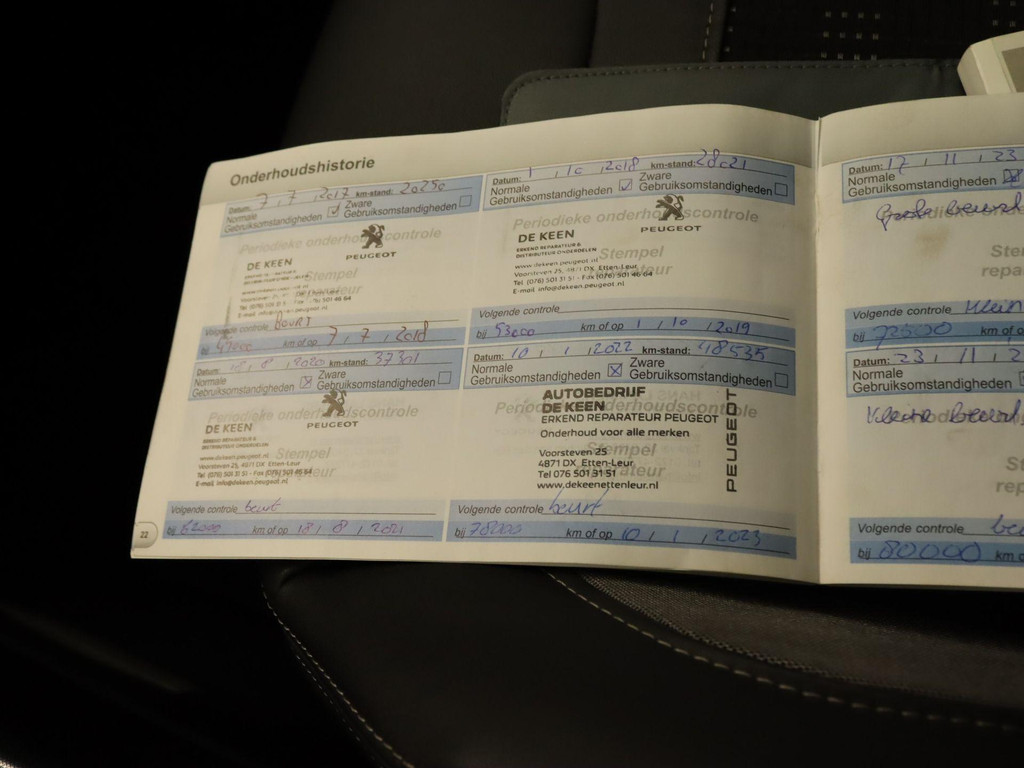 Onderhoudshistorie
Datum: 7 , 7 , 2017 km-stand: 20250
Normale
Gebruiksomstandigheden ☑ Zware
Gebruiksomstandigheden ☐
Periodieke onderhoudscontrole
DE KEEN
PEUGEOT
Stempel
Volgende controle BEURT
bij km of op 7 , 7 , 2018
Datum: 1 , 10 , 2018 km-stand: 28021
Normale
Gebruiksomstandigheden ☑ Zware
Gebruiksomstandigheden ☐
Periodieke onderhoudscontrole
DE KEEN
PEUGEOT
ERKEND REPARATEUR &
DISTRIBUTEUR ONDERDELEN
Stempel
www.dekeen.peugeot.nl
Voorsteven 25, 4871 DX Etten-Leur
Tel (076) 501 31 51 - Fax (076) 501 46 64
E-mail info@dekeen.peugeot.nl
Volgende controle
bij 53000 km of op 1 , 10 , 2019
Datum: 18 , 8 , 2020 km-stand: 37301
Normale
Gebruiksomstandigheden ☒ Zware
Gebruiksomstandigheden ☐
Periodieke onderhoudscontrole
DE KEEN
PEUGEOT
ERKEND REPARATEUR &
DISTRIBUTEUR ONDERDELEN
Stempel
www.dekeen.peugeot.nl
Voorsteven 25, 4871 DX Etten-Leur
Tel (076) 501 31 51 - Fax (076) 501 46 64
E-mail info@dekeen.peugeot.nl
Volgende controle beurt
bij 62000 km of op 18 , 8 , 2021
Datum: 10 , 1 , 2022 km-stand: 48535
Normale
Gebruiksomstandigheden ☒ Zware
Gebruiksomstandigheden ☐
Periodieke onderhoudscontrole
AUTOBEDRIJF
DE KEEN
ERKEND REPARATEUR PEUGEOT
Onderhoud voor alle merken
Stempel
Voorsteven 25
4871 DX Etten-Leur
Tel 076 501 31 51
www.dekeenettenleur.nl
PEUGEOT
Volgende controle beurt
bij 78000 km of op 10 , 1 , 2023
22
Datum: 17 , 11 , 23
Normale
Gebruiksomstandigheden ☒
Grote beurt
Stem
repa
Volgende controle Klein
bij 72500 km o
Datum: 23 , 11 , 2
Normale
Gebruiksomstandigheden
Kleine beurt
Ste
rep
Volgende controle be
bij 80.000 km o